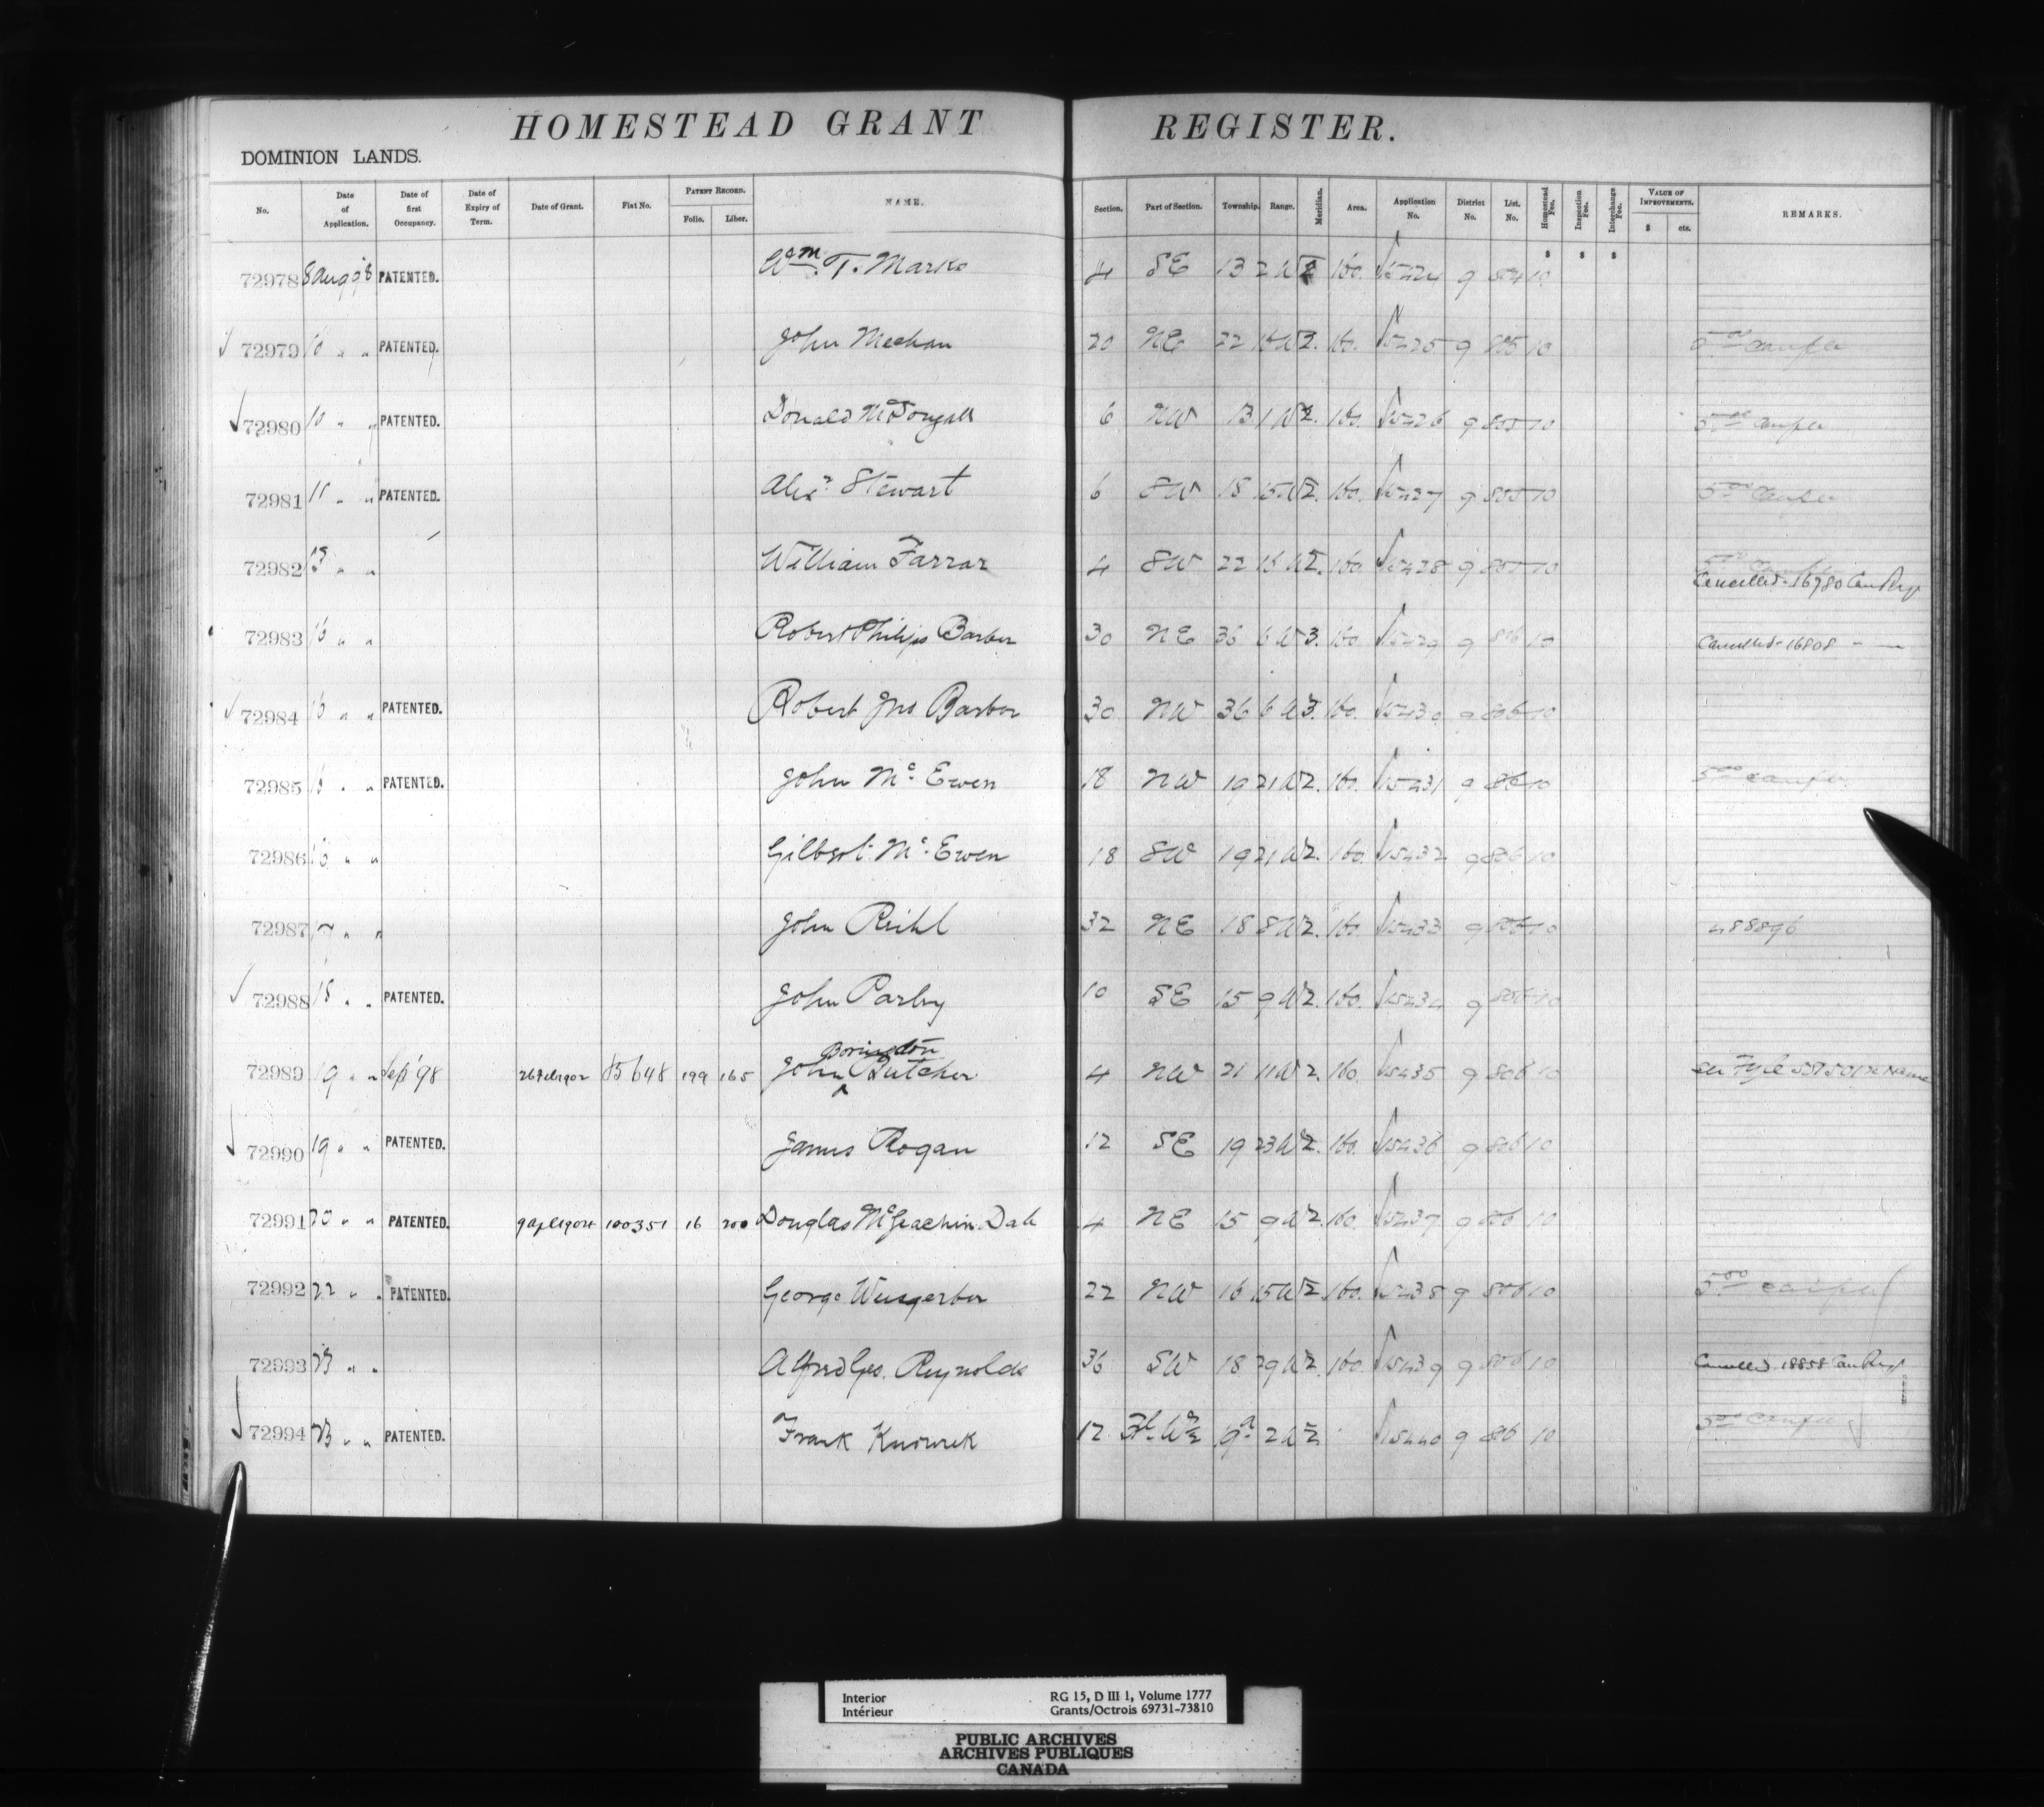 HOMESTEAD GRANT REGISTER.
DOMINION LANDS.
No. Date of Application. Date of first Occupancy. Date of Expiry of Term. Date of Grant. Fiat No. PATENT RECORD. Folio. Liber. NAME. Section. Part of Section. Township. Range. Meridian. Area. Application No. District No. List. No. Homestead Fee. Inspection Fee. Interchange Fee. VALUE OF IMPROVEMENTS. $ cts. REMARKS.
$ $ $
72978 8 Aug 98 PATENTED. Wm. T. Marks 4 SE 13 2 W 2 160. 15424 9 804 10
72979 10 " " PATENTED. John Meehan 20 NE 22 16 W 2. 160. 15425 9 805 10
72980 10 " " PATENTED. Donald McDougall 6 NW 13 1 W 2. 160. 15426 9 805 10
72981 11 " " PATENTED. Alexr Stewart 6 SW 18 15 W 2. 160. 15427 9 805 10
72982 13 " " William Farrar 4 SW 22 16 W 2. 160. 15428 9 805 10
Cancelled. 16780 Can Reg
72983 16 " " Robert Philips Barber 30 NE 36 6 W 3. 160. 15429 9 806 10 Cancelled 16808 " —
72984 16 " " PATENTED. Robert Jno Barber 30 NW 36 6 W 3. 160. 15430 9 806 10
72985 16 " " PATENTED. John Mc Ewen 18 NW 19 21 W 2. 160. 15431 9 806 10
72986 16 " " Gilbert Mc Ewen 18 SW 19 21 W 2. 160. 15432 9 806 10
72987 17 " " John Reihl 32 NE 18 8 W 2. 160. 15433 9 806 10 488896
72988 18 " " PATENTED. John Parley 10 SE 15 9 W 2. 160. 15434 9 806 10
Boringdon
72989 19 " " Sep '98 26 Feb 1902 85648 199 165 John Butcher 4 NW 21 11 W 2. 160. 15435 9 806 10 See Fyle 557501 re Name
72990 19 " " PATENTED. James Rogan 12 SE 19 23 W 2. 160. 15436 9 806 10
72991 20 " " PATENTED. 9 apl 1904 100351 16 200 Douglas McGeachin Dale 4 NE 15 9 W 2. 160. 15437 9 806 10
72992 22 " " PATENTED. George Weisgerber 22 NW 16 15 W 2. 160. 15438 9 806 10
72993 23 " " Alfred Geo. Reynolds 36 SW 18 29 W 2. 160. 15439 9 806 10 Cancelled 18858 Can Reg
72994 23 " " PATENTED. Frank 12 2 W 2 15440 9 806 10
Interior
Intérieur
RG 15, D III 1, Volume 1777
Grants/Octrois 69731-73810
PUBLIC ARCHIVES
ARCHIVES PUBLIQUES
CANADA